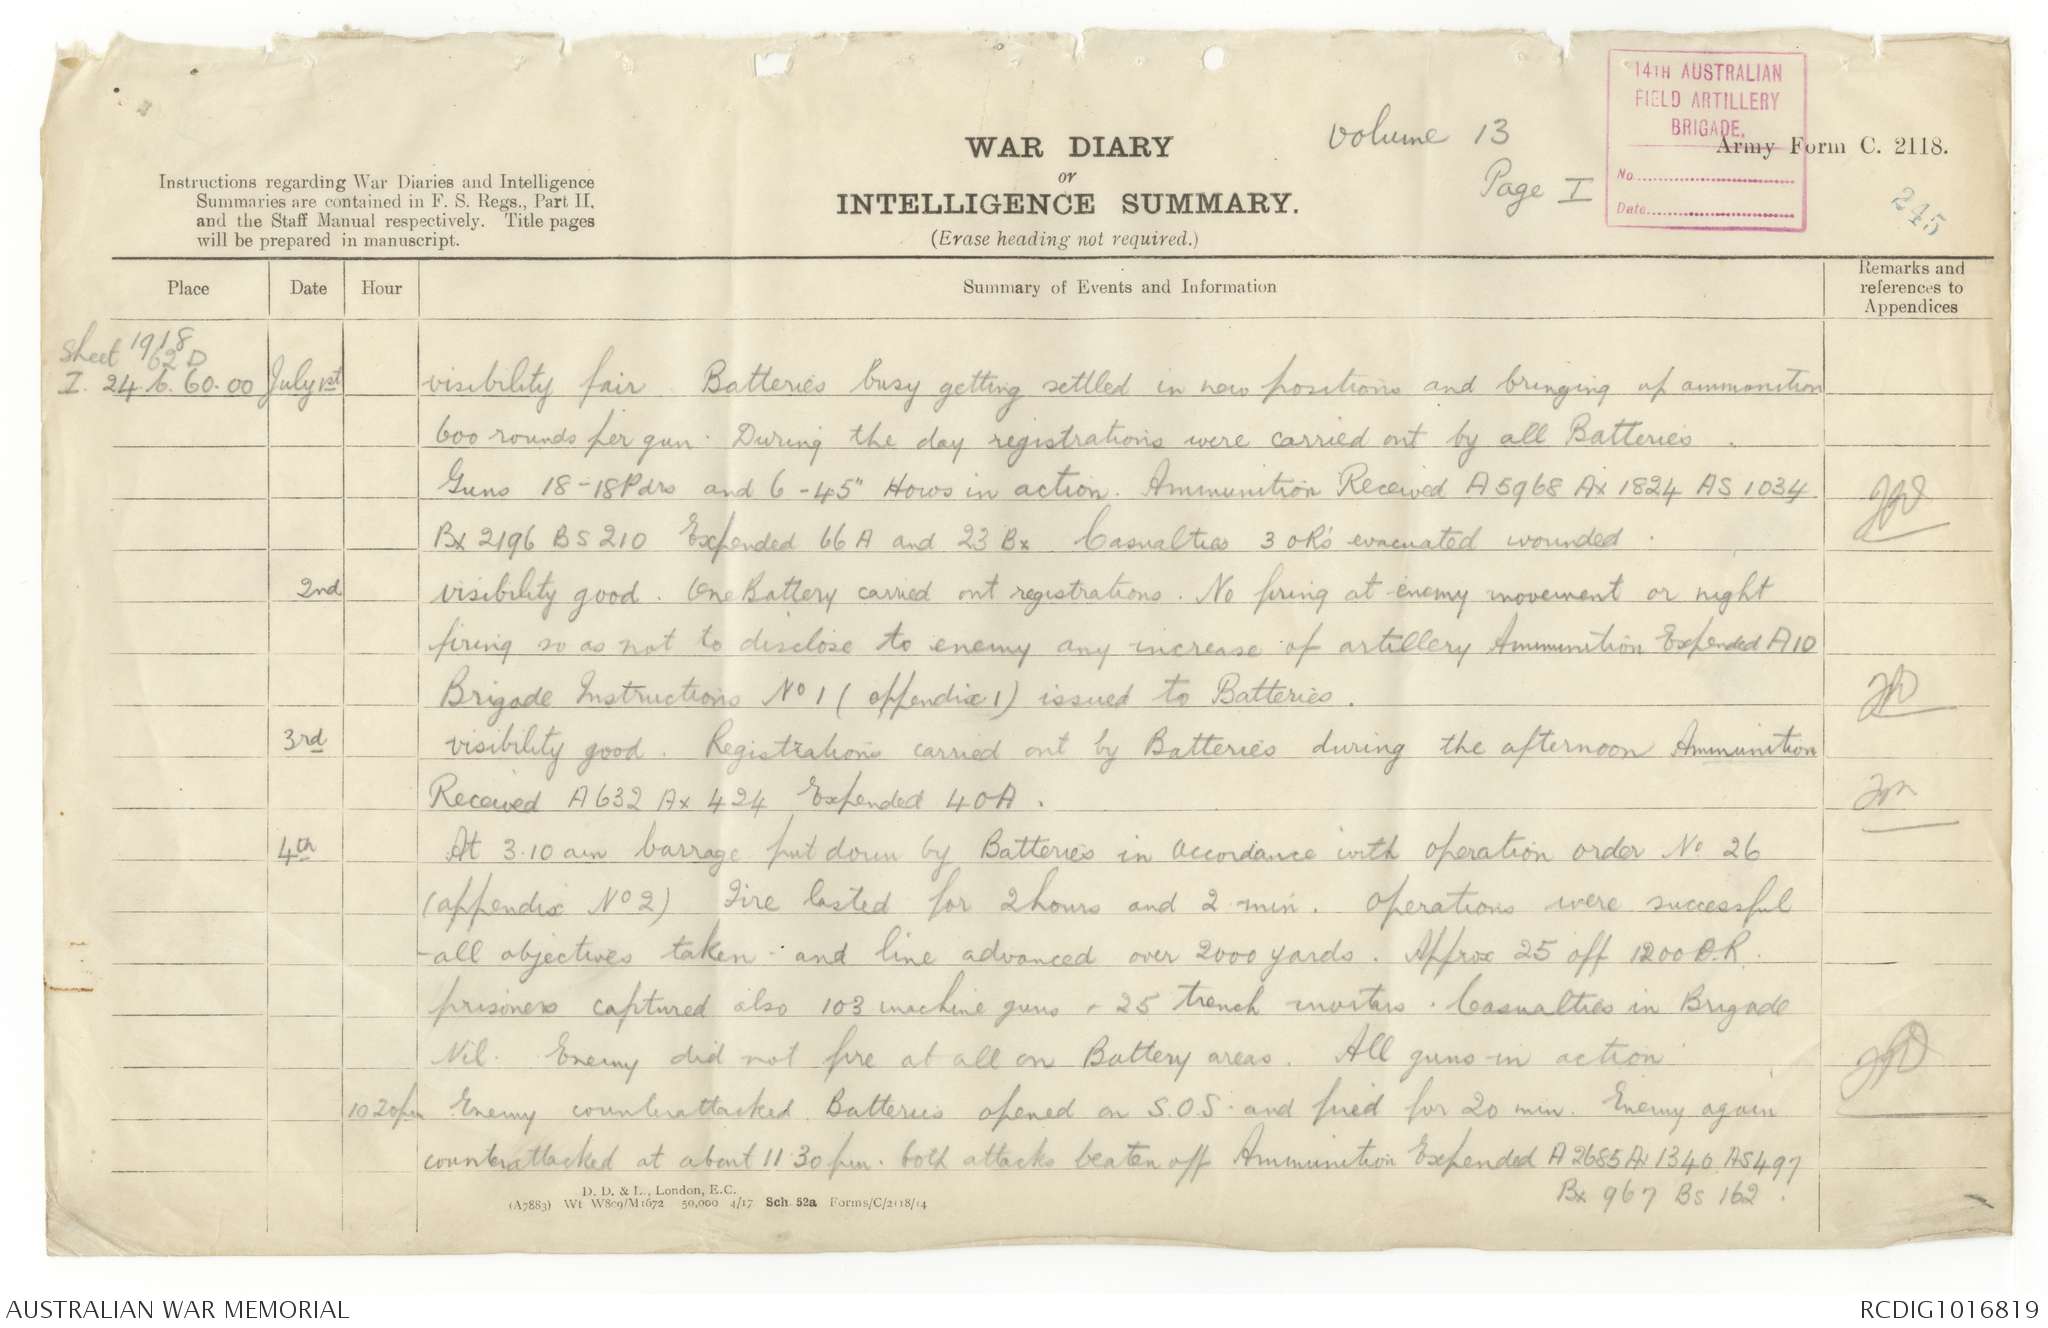 14TH AUSTRALIAN
FIELD ARTILLERY
BRIGADE.
No.
Date
WAR DIARY
or
INTELLIGENCE SUMMARY.
(Erase heading not required.)
Volume 13
Page I
Army Form C. 2118.
245
Instructions regarding War Diaries and Intelligence
Summaries are contained in F. S. Regs., Part II,
and the Staff Manual respectively. Title pages
will be prepared in manuscript.
Place Date Hour Summary of Events and Information Remarks and references to Appendices
1918
Sheet 62 D
I. 24. b. 60.00 July 1st visibility fair. Batteries busy getting settled in new positions and bringing up ammunition
600 rounds per gun. During the day registrations were carried out by all Batteries.
Guns 18-18Pdrs and 6-45" Hows in action. Ammunition Received A 5968 Ax 1824 AS 1034
Bx 2196 BS 210 Expended 66 A and 23 Bx Casualties 3 OR's evacuated wounded.
2nd visibility good. One Battery carried out registrations. No firing at enemy movement or night
firing so as not to disclose to enemy any increase of artillery Ammunition Expended A10
Brigade Instructions No 1 (appendix 1) issued to Batteries.
3rd visibility good. Registrations carried out by Batteries during the afternoon Ammunition
Received A 632 Ax 424 Expended 40A.
4th At 3.10 am barrage put down by Batteries in accordance with operation order No 26
(appendix No 2) Fire lasted for 2 hours and 2 min. Operations were successful
-all objectives taken - and line advanced over 2000 yards. Approx 25 off 1200 O.R.
prisoners captured also 103 machine guns + 25 trench mortars. Casualties in Brigade
Nil. Enemy did not fire at all on Battery areas. All guns in action
10 20 pm Enemy counterattacked. Batteries opened on S.O.S. and fired for 20 min. Enemy again
counterattacked at about 11 30 pm. both attacks beaten off Ammunition Expended A 2685 Ax 1340 AS 497
Bx 967 BS 162.
D. D. & L., London, E.C.
(A7883) Wt W809/M1672 50,000 4/17 Sch. 52a Forms/C/2118/14
AUSTRALIAN WAR MEMORIAL
RCDIG1016819